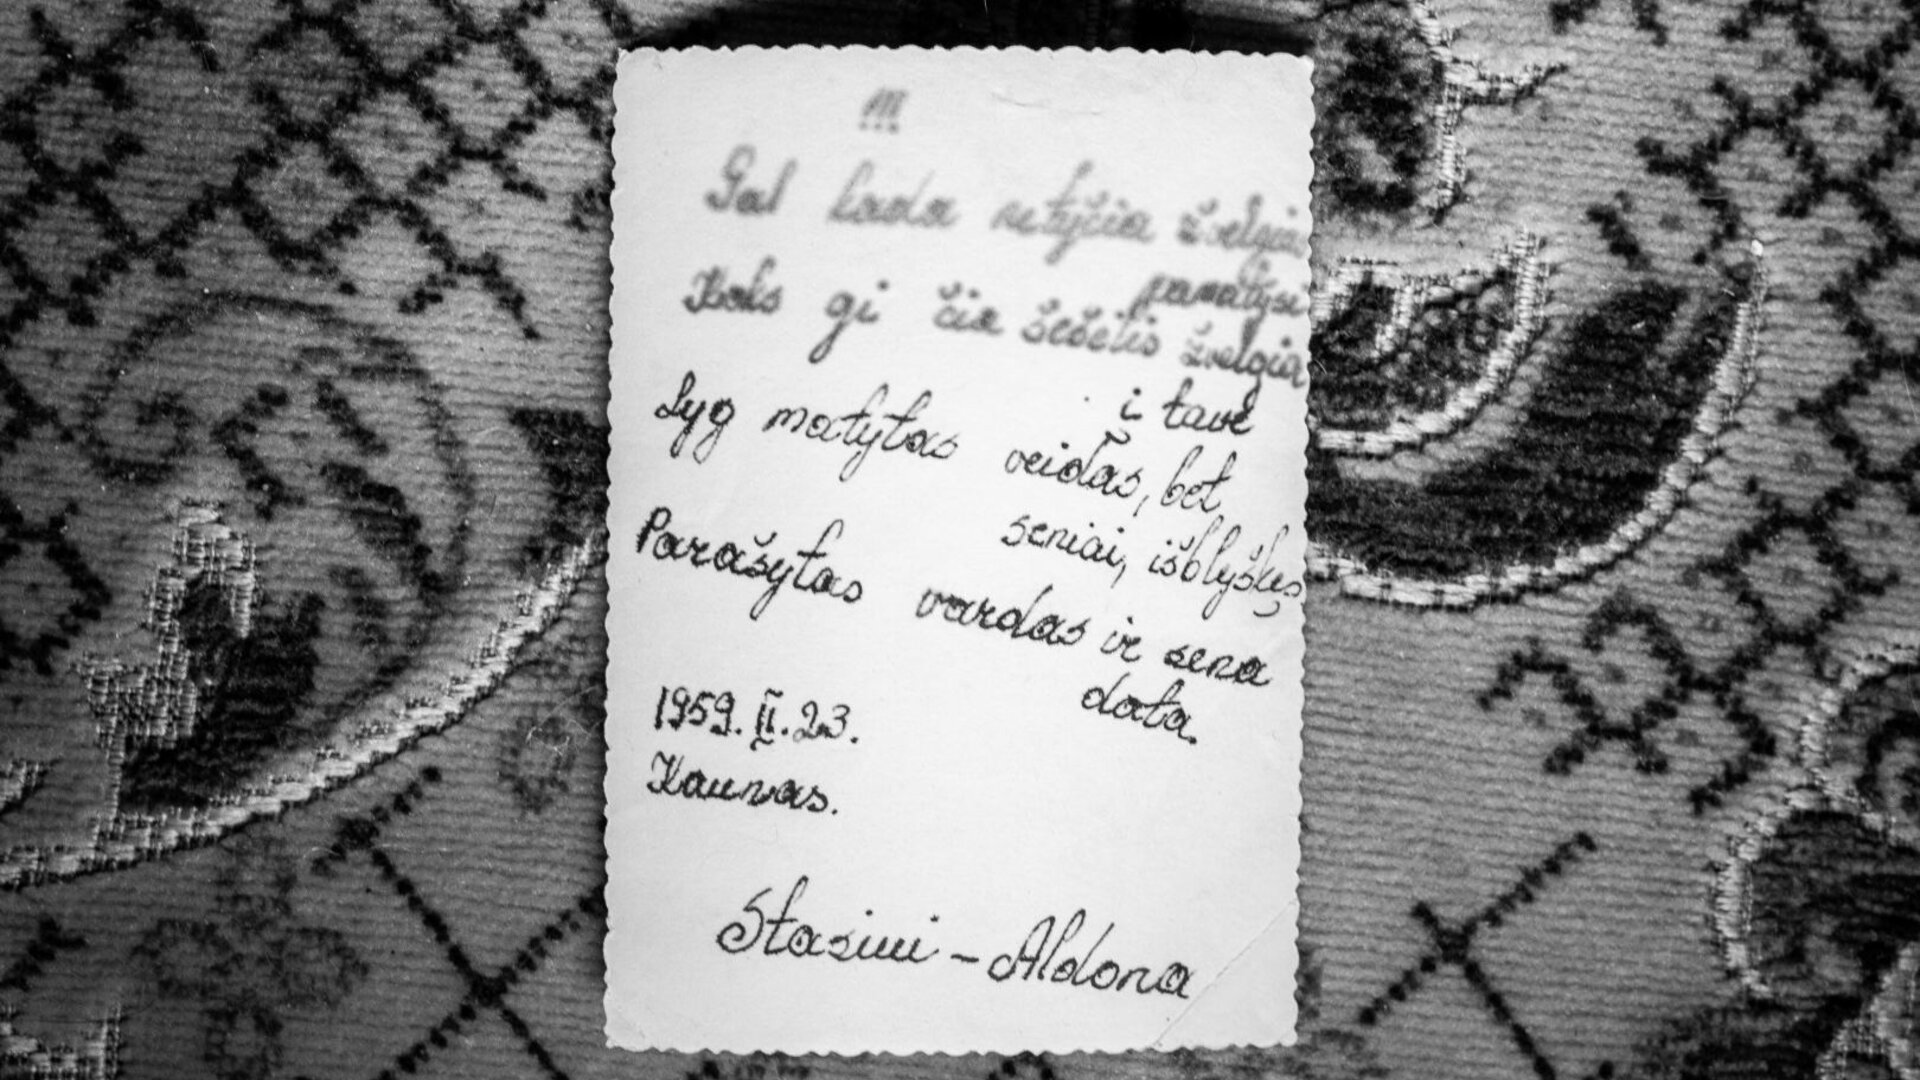 !!!
Gal kada netyčia žvelgiai
pamatysi
Koks gi čia šešėlis žvelgia
į tave
Lyg matytas veidas, bet
seniai, išblyškęs
Parašytas vardas ir sena
data.
1959.II.23.
Kaunas.
Stasiui – Aldona